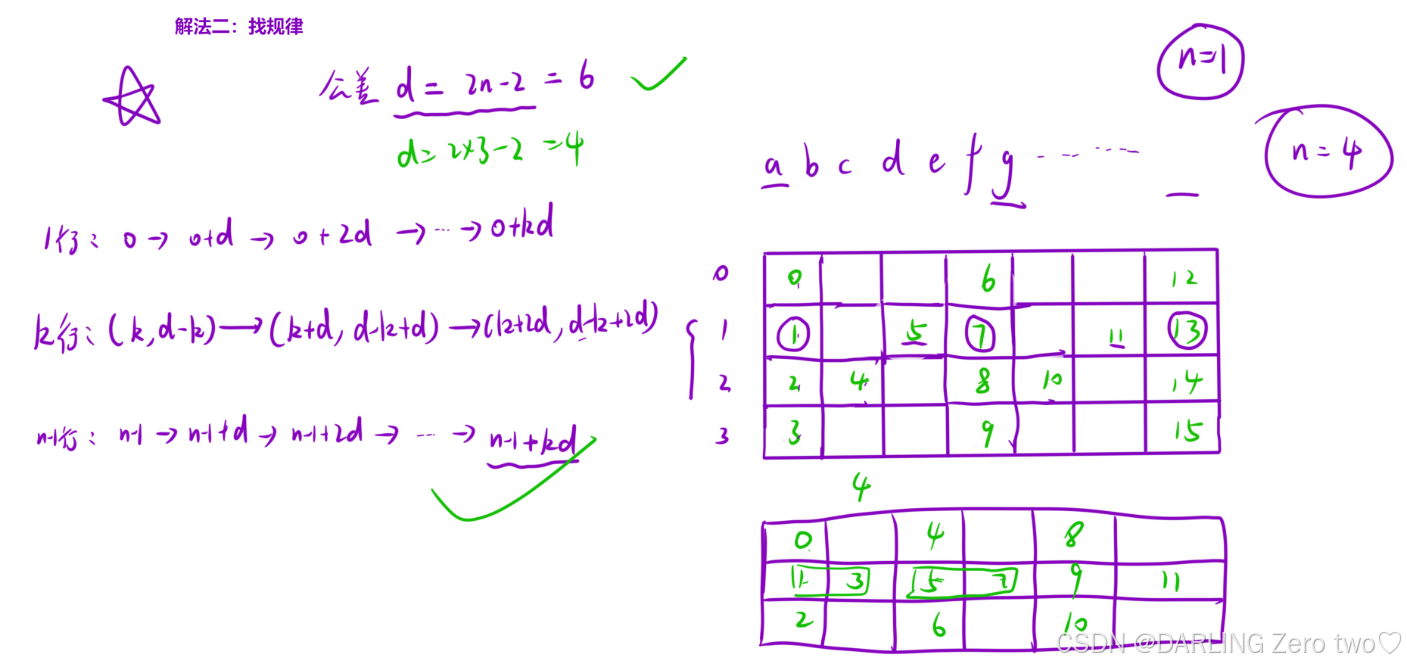 解法二：找规律
n=1
公差 d = 2n-2 = 6
d= 2×3-2 =4
n = 4
a b c d e f g ……
1行： 0 → 0+d → 0+2d → … → 0+kd
k行：(k, d-k) → (k+d, d-k+d) → (k+2d, d-k+2d)
n-1行： n-1 → n-1+d → n-1+2d → … → n-1+kd
0 0 6 12
1 1 5 7 11 13
2 2 4 8 10 14
3 3 9 15
4
0 4 8
1 3 5 7 9 11
2 6 10
CSDN @DARLING Zero two♡